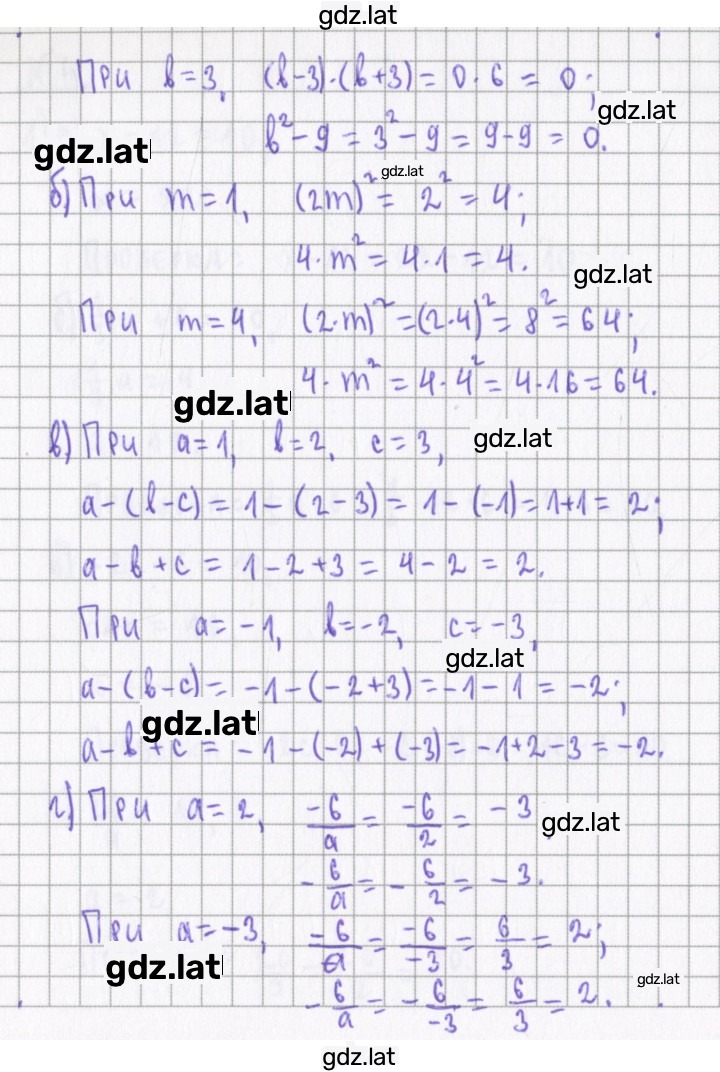 gdz.lat
При b=3, (b-3)·(b+3) = 0·6 = 0;
gdz.lat
b² - 9 = 3² - 9 = 9 - 9 = 0.
gdz.lat
gdz.lat
б) При m=1, (2m)² = 2² = 4;
4·m² = 4·1 = 4.
gdz.lat
При m=4, (2·m)² = (2·4)² = 8² = 64;
4·m² = 4·4² = 4·16 = 64.
gdz.lat
в) При a=1, b=2, c=3,
gdz.lat
a-(b-c) = 1-(2-3) = 1-(-1) = 1+1 = 2;
a-b+c = 1-2+3 = 4-2 = 2.
При a=-1, b=-2, c=-3,
gdz.lat
a-(b-c) = -1-(-2+3) = -1-1 = -2;
gdz.lat
a-b+c = -1-(-2)+(-3) = -1+2-3 = -2.
г) При a=2, -6/a = -6/2 = -3
gdz.lat
-6/a = -6/2 = -3.
При a=-3, -6/a = -6/-3 = 6/3 = 2;
gdz.lat
gdz.lat
-6/a = -6/-3 = 6/3 = 2.
gdz.lat